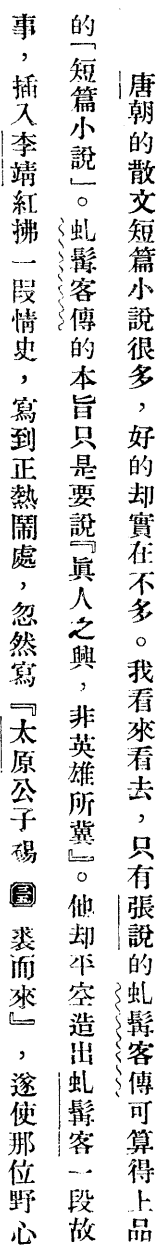 唐朝的散文短篇小說很多，好的却實在不多。我看來看去，只有張說的虬髯客傳可算得上品
的「短篇小說」。虬髯客傳的本旨只是要說『眞人之興，非英雄所冀』。他却平空造出虬髯客一段故
事，插入李靖紅拂一段情史，寫到正熱鬧處，忽然寫『太原公子裼 裘而來』，遂使那位野心